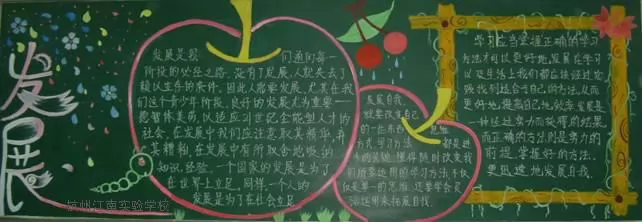 发展
发展是我们通向每一
阶段的必经之路,没有了发展,人就失去了
赖以生存的条件。因此人需要发展,尤其在我
们这个青少年阶段,良好的发展尤为重要——
德智体美劳,以适应21世纪全能型人才的
社会,在发展中我们应注意取其精华,弃
其糟粕,在发展中有所取舍地吸纳
知识、经验。一个国家的发展是为了
在世界上立足,同样,一个人的
发展是为了在社会立足
发展自我,
就要改变自己
的一些东西
方式、学习方法
都是进
步的基础,懂得随时改变我
们所要运用的学习方法,不仅
仅是第一的思维,还要学会灵
活运用来拓展自我。
学习应当掌握正确的学习
方法才可以更好地发展,在学习
以及生活上我们都应该经过实
践找到适合于自己的方法,从而
更好地提高自己地效率,发展是
一种经过努力而获得的结果,
而正确的方法则是努力的
前提,掌握好的方法,
更迅速地发展自我。
杭州江南实验学校